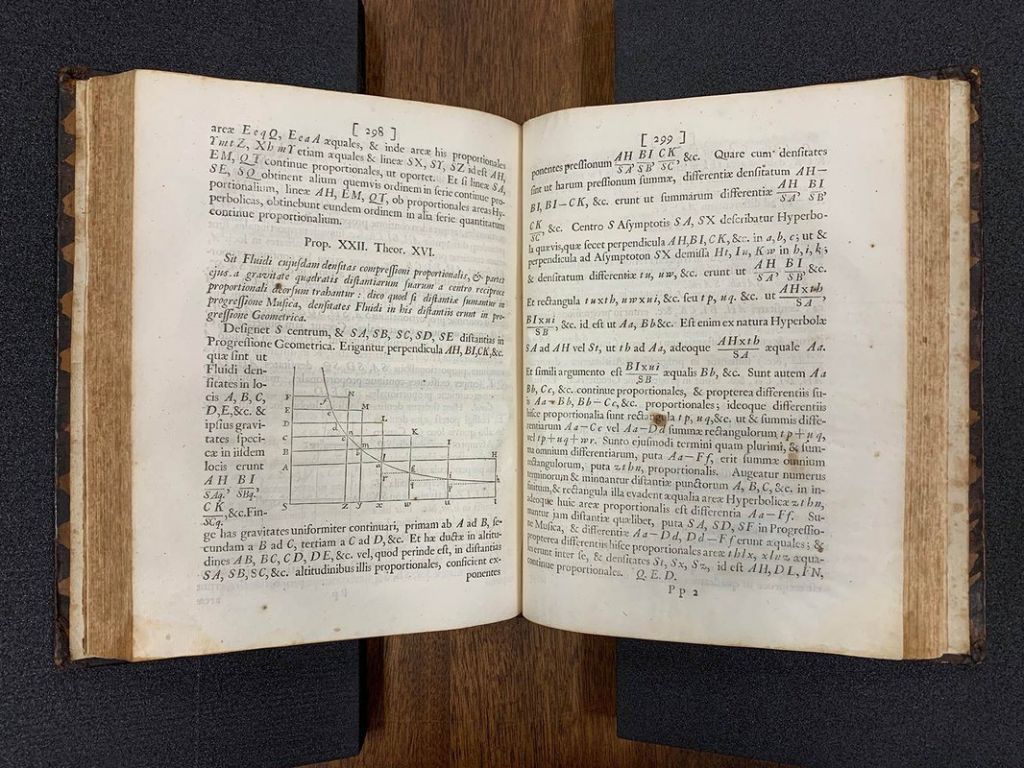 [ 298 ]
areæ EeqQ, EeaA æquales, & inde areæ his proportionales
YmtZ, XhmY etiam æquales & lineæ SX, SY, SZ id est AH,
EM, QT continue proportionales, ut oportet. Et si lineæ SA,
SE, SQ obtinent alium quemvis ordinem in serie continue pro-
portionalium, lineæ AH, EM, QT, ob proportionales areas Hy-
perbolicas, obtinebunt eundem ordinem in alia serie quantitatum
continue proportionalium.
Prop. XXII. Theor. XVI.
Sit Fluidi cujusdam densitas compressioni proportionalis, & partes
ejus a gravitate quadratis distantiarum suarum a centro reciproce
proportionali deorsum trahantur: dico quod si distantiæ sumantur in
progressione Musica, densitates Fluidi in his distantiis erunt in pro-
gressione Geometrica.
Designet S centrum, & SA, SB, SC, SD, SE distantias in
Progressione Geometrica. Erigantur perpendicula AH, BI, CK, &c.
quæ sint ut
Fluidi den-
sitates in lo-
cis A, B, C,
D, E, &c. &
ipsius gravi-
tates speci-
cæ in iisdem
locis erunt
AH BI
SAq.’ SBq.’
CK
SCq. , &c. Fin-
F
E
D
C
B
A
S
N
M
L
K
I
H
z y x w u t
ge has gravitates uniformiter continuari, primam ab A ad B, se-
cundam a B ad C, tertiam a C ad D, &c. Et hæ ductæ in altitu-
dines AB, BC, CD, DE, &c. vel, quod perinde est, in distantias
SA, SB, SC, &c. altitudinibus illis proportionales, conficient ex-
ponentes
[ 299 ]
ponentes pressionum AH/SA, BI/SB, CK/SC, &c. Quare cum densitates
sint ut harum pressionum summæ, differentiæ densitatum AH—
BI, BI—CK, &c. erunt ut summarum differentiæ AH/SA, BI/SB,
CK/SC, &c. Centro S Asymptotis SA, SX describatur Hyperbo-
la quævis, quæ secet perpendicula AH, BI, CK, &c. in a, b, c; ut &
perpendicula ad Asymptoton SX demissa Ht, Iu, Kw in h, i, k;
& densitatum differentiæ tu, uw, &c. erunt ut AH/SA, BI/SB, &c.
Et rectangula tu×th, uw×ui, &c. seu tp, uq. &c. ut AH×th/SA,
BI×ui/SB, &c. id est ut Aa, Bb &c. Est enim ex natura Hyperbolæ
SA ad AH vel St, ut th ad Aa, adeoque AH×th/SA æquale Aa.
Et simili argumento est BI×ui/SB æqualis Bb, &c. Sunt autem Aa
Bb, Cc, &c. continue proportionales, & propterea differentiis su-
is Aa—Bb, Bb—Cc, &c. proportionales; ideoque differentiis
hisce proportionalia sunt rectangula tp, uq, &c. ut & summis diffe-
rentiarum Aa—Cc vel Aa—Dd summæ rectangulorum tp+uq,
vel tp+uq+wr. Sunto ejusmodi termini quam plurimi, & sum-
ma omnium differentiarum, puta Aa—Ff, erit summæ omnium
rectangulorum, puta zthn, proportionalis. Augeatur numerus
terminorum & minuantur distantiæ punctorum A, B, C, &c. in in-
finitum, & rectangula illa evadent æqualia areæ Hyperbolicæ zthn,
adeoque huic areæ proportionalis est differentia Aa—Ff. Su-
mantur jam distantiæ quælibet, puta SA, SD, SF in Progressio-
ne Musica, & differentiæ Aa—Dd, Dd—Ff erunt æquales; &
propterea differentiis hisce proportionales areæ thlx, xlnz æqua-
les erunt inter se, & densitates St, Sx, Sz, id est AH, DL, FN,
continue proportionales. Q. E. D.
Pp 2